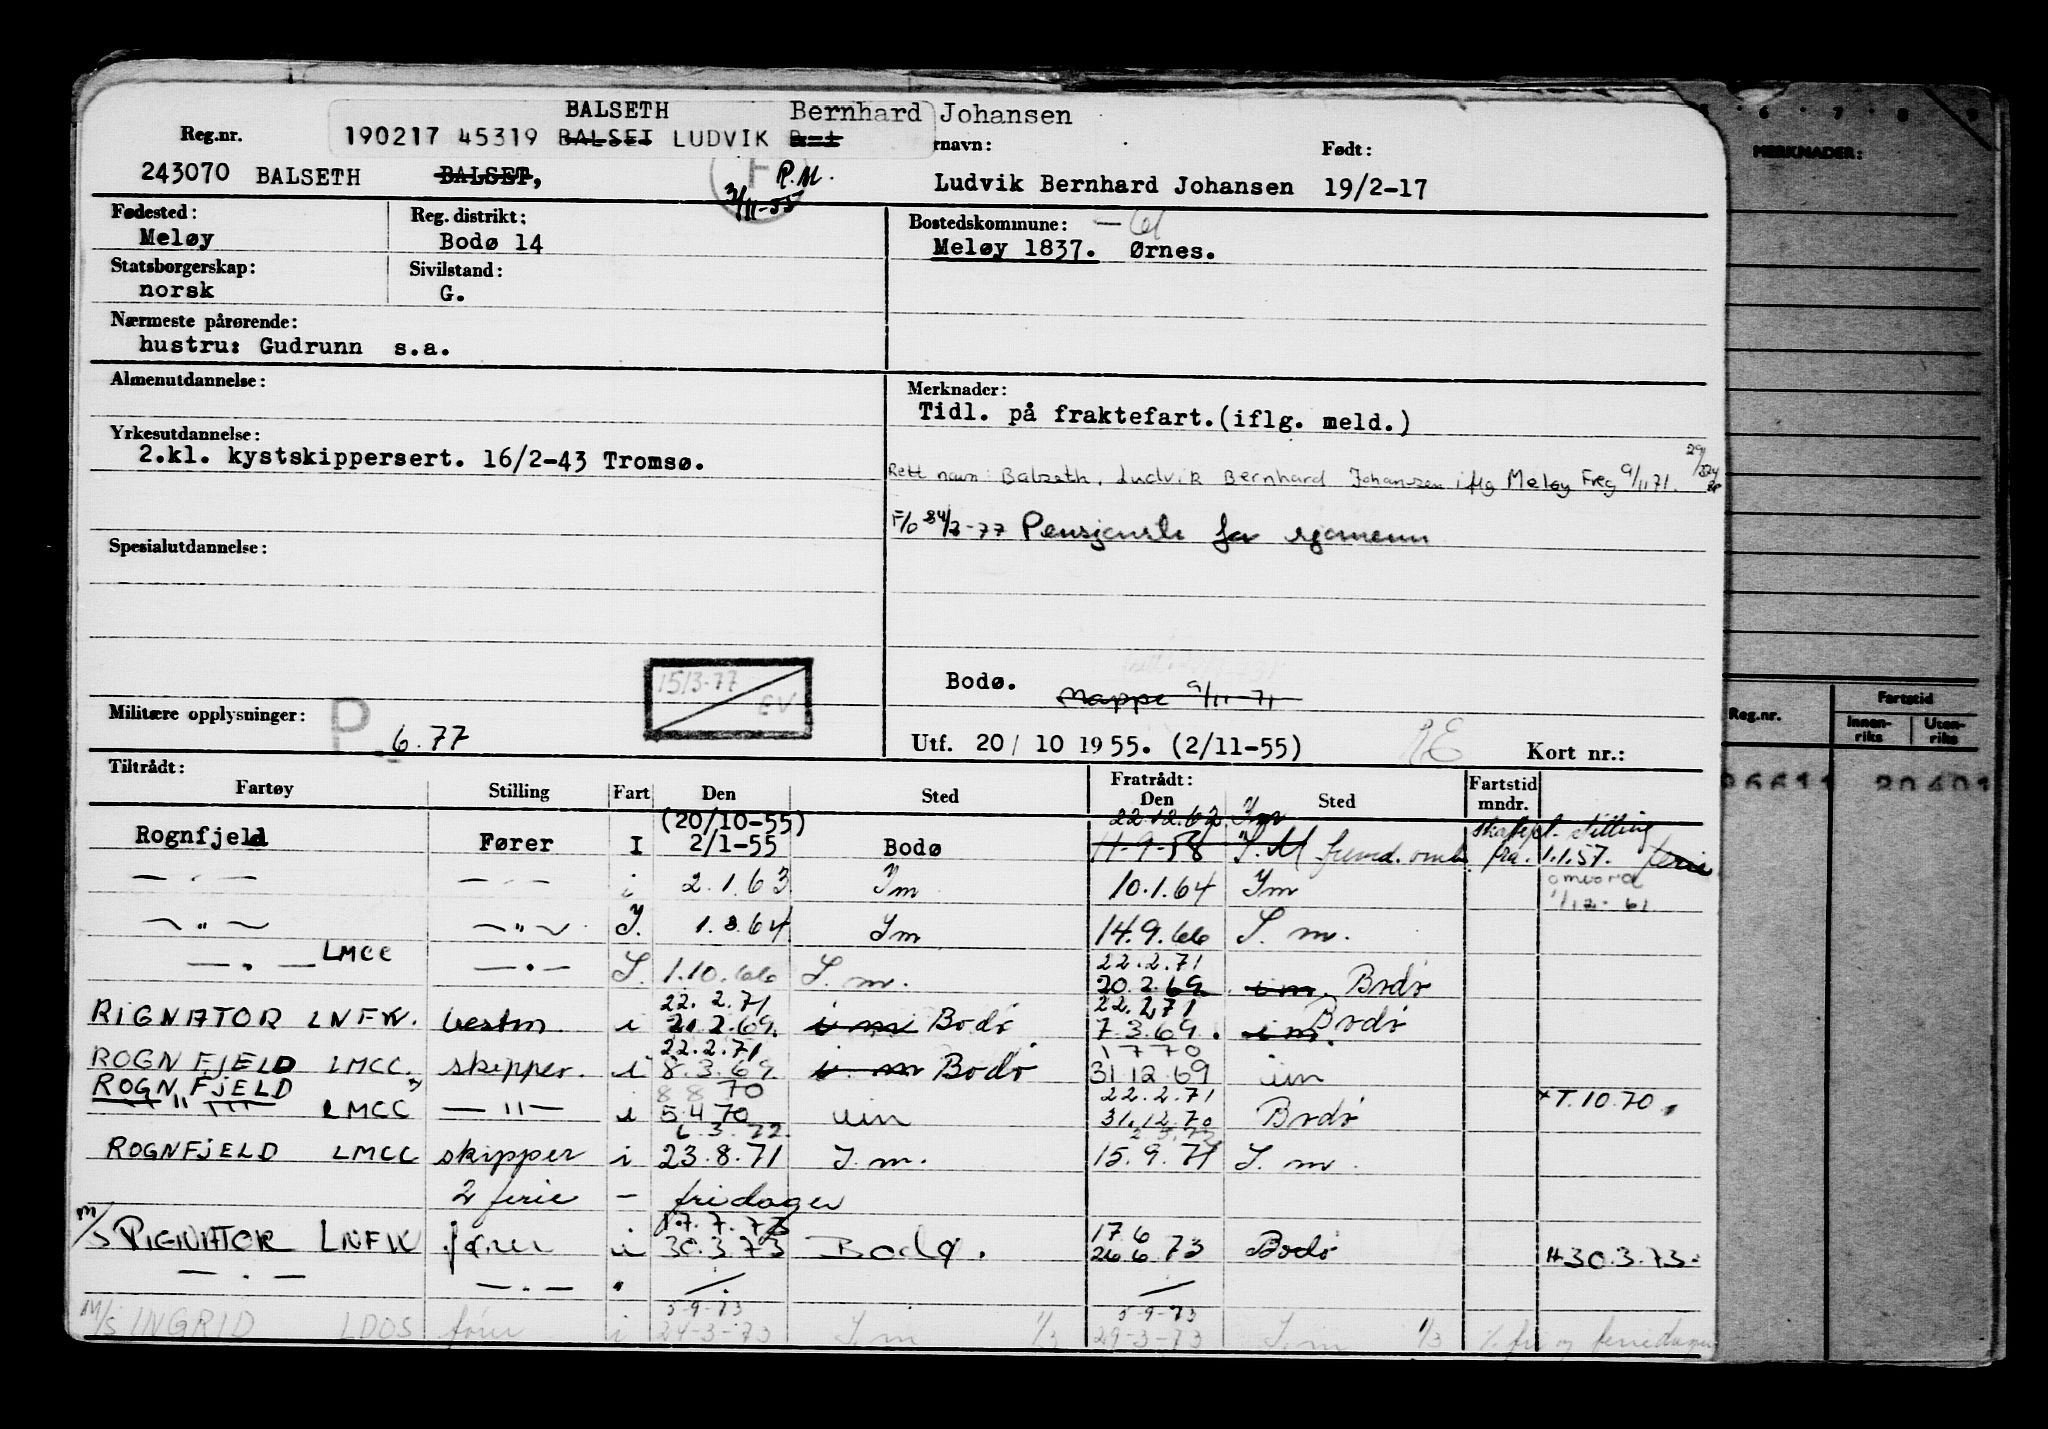 BALSETH Bernhard Johansen
Reg.nr. 190217 45319 BALSET LUDVIK rnavn: Født:
243070 BALSETH BALSET, F P.M. Ludvik Bernhard Johansen 19/2-17
3/11-55
Fødested: Reg. distrikt: Bostedskommune:
Meløy Bodø 14 Meløy 1837. Ørnes.
Statsborgerskap: Sivilstand:
norsk G.
Nærmeste pårørende:
hustru: Gudrunn s.a.
Almenutdannelse: Merknader:
Tidl. på fraktefart.(iflg. meld.)
Yrkesutdannelse:
2.kl. kystskippersert. 16/2-43 Tromsø.
Rett navn: Balseth, Ludvik Bernhard Johansen iflg Meløy Freg 9/11 71.
F/6 24/3-77 Pensjonstr for sjømenn
Spesialutdannelse:
15/3-77 EV
Bodø. Mappe 9/11-71
Militære opplysninger: P 6.77
Utf. 20/10 1955. (2/11-55) Kort nr.:
Tiltrådt: Fratrådt:
Fartøy Stilling Fart Den Sted Den Sted Fartstid mndr.
(20/10-55) 22.12.62 Im
Rognfjeld Fører I 2/1-55 Bodø 11-9-58 I.M fra 1.1.57. ferie
— · — — · — i 2.1.63 Im 10.1.64 Im
1/12-61
— " — — " — I. 1.3.64 Im 14.9.66 I. m.
— · — LMCC — · — I. 1.10.66 I. m. 22.2.71
20.2.69 i m. Bodø
RIGNATOR LNFK. bestm i 22.2.71
21.2.69. i m Bodø 22.2.71
7.3.69. i m. Bodø
ROGNFJELD LMCC. skipper. i 22.2.71
8.3.69. i m Bodø 1 7 70
31 12 69 im
ROGNFJELD
— " — LMCC — " — i 8 8 70
5 4 70 im 22.2.71
31.12.70 Bodø +T.10.70
ROGNFJELD LMCC skipper i 6.3.72.
23.8.71 I.m. 15.9.71 I. m.
2 ferie – fridager
M/S RIGNATOR LNFK fører i 17.7.73
30.3.73 Bodø. 17.6
26.6.73 Bodø 30.3.73
— · — — · — "
M/S INGRID LDOS fører i 5-9-73
24-3-73 I.m 1/3 5-9-73
29-3-73 I.m 1/3 fri og feriedager
6 · 7 · 8 · 9
MERKNADER:
Reg.nr. Fartstid
Innen-riks Uten-riks